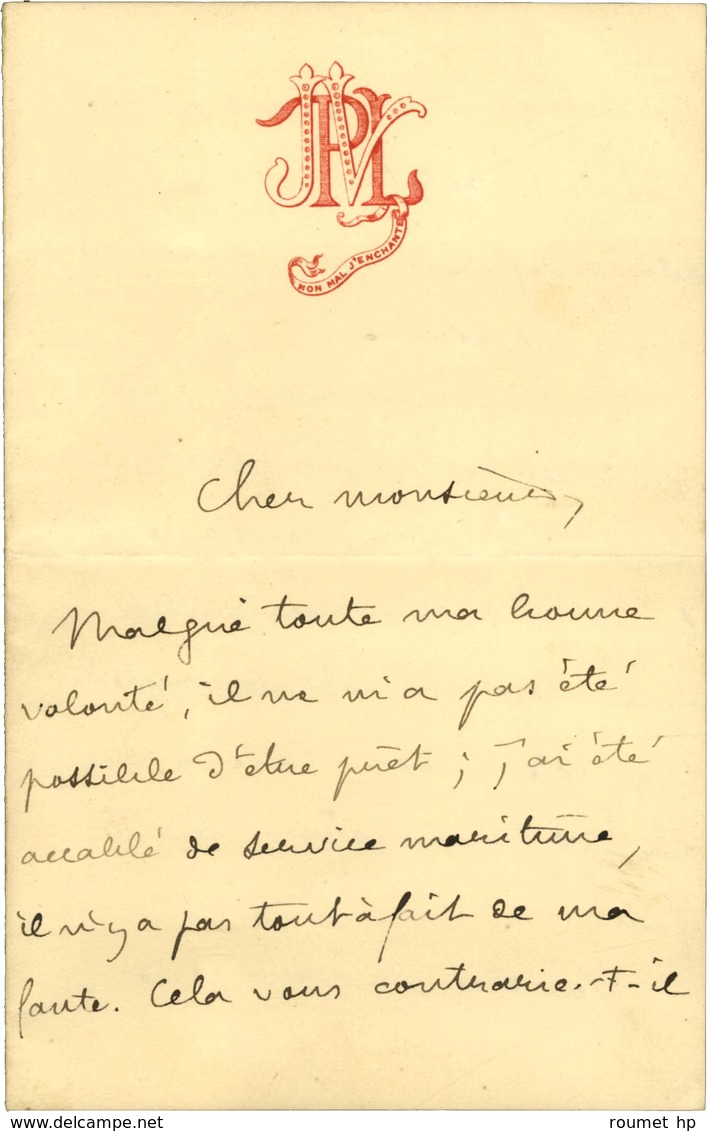 JPLV
MON MAL J'ENCHANTE
Cher monsieur,
Malgré toute ma bonne
volonté, il ne m'a pas été
possible d'être prêt ; j'ai été
accablé de service maritime,
il n'y a pas tout à fait de ma
faute. Cela vous contrarie-t-il
roumet hp